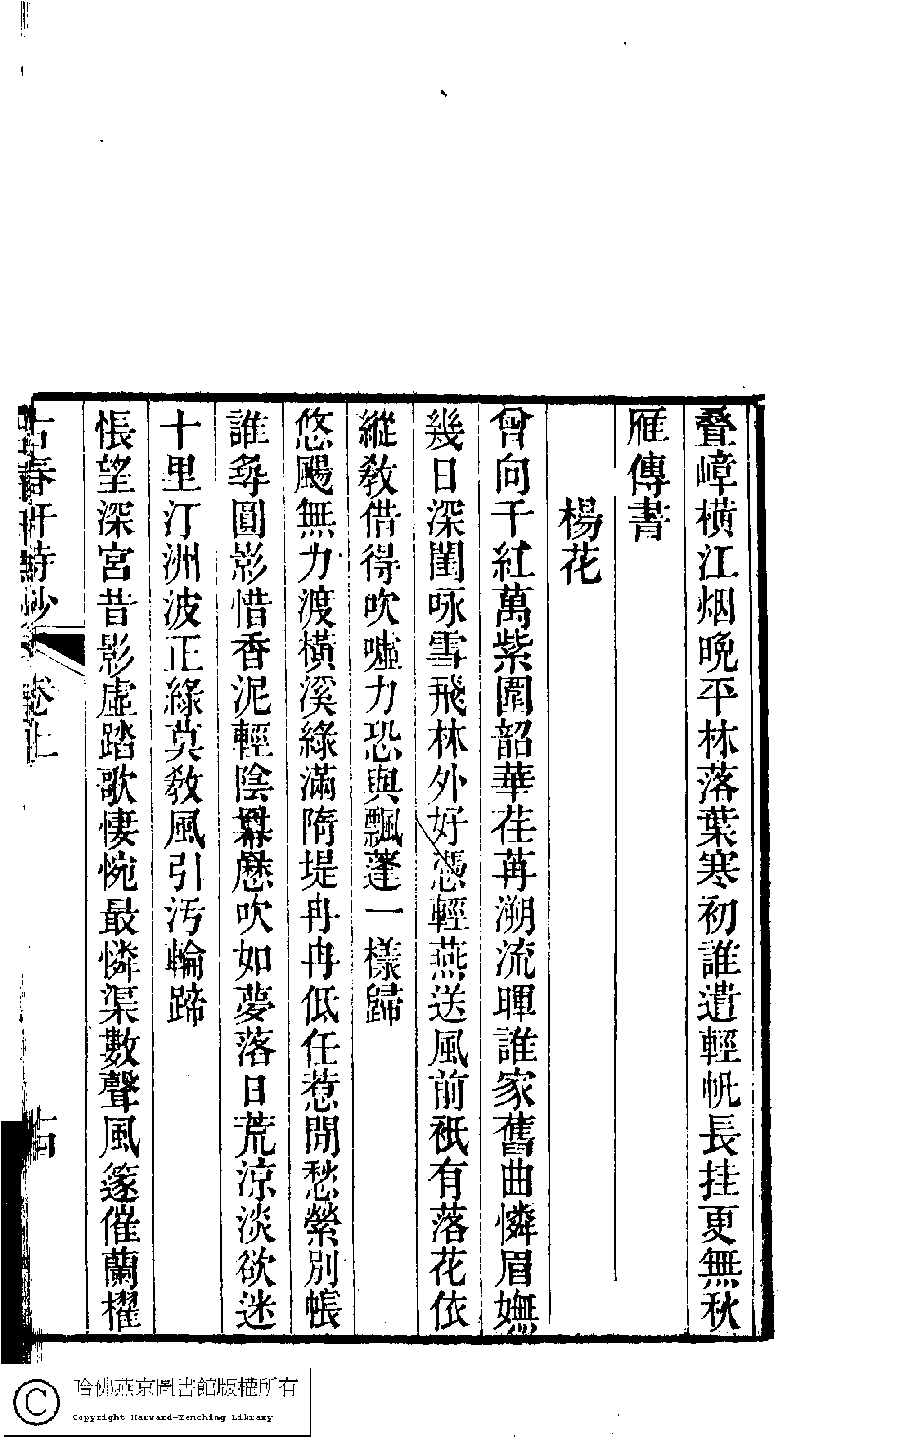 叠嶂橫江烟晩平林落葉寒初誰遣輕帆長挂更無秋
雁傳書
楊花
曾向千紅萬紫圍韶華荏苒溯流暉誰家舊曲憐眉嫵
幾日深閨咏雪飛林外好憑輕燕送風前祇有落花依
縱敎借得吹噓力恐與飄蓬一樣歸
悠颺無力渡橫溪綠滿隋堤冉冉低任惹閒愁縈別帳
誰尋圓影惜香泥輕陰羃歷吹如夢落日荒涼淡欲迷
十里汀洲波正綠莫敎風引汚輪蹄
悵望深宮昔影虛踏歌悽惋最憐渠數聲風篴催蘭櫂
古春軒詩鈔
卷上
十四
哈佛燕京圖書館版權所有
Copyright Harvard-Yenching Library